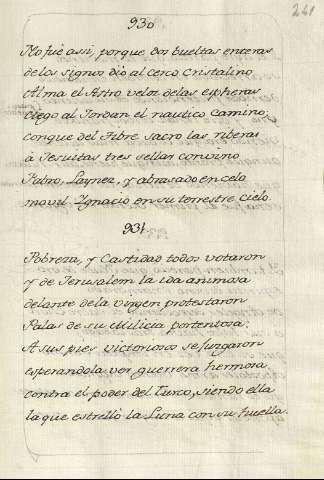 930
241
No fuè assi, porque dos bueltas enteras
de los signos diò al cerco cristalino
Alma el Astro veloz de las espheras
Ciego al Jordan el nautico camino;
conque del Tibre sacro las riberas
à Jesuitas tres sellar convino
Fabro, Laynez, y abrasado en celo
movil Ignacio en su terrestre cielo.
931
Pobreza, y Castidad todos votaron
y de Jerusalem la ida animosa
delante de la virgen protestaron
Palas de su Milicia portentosa:
A sus pies victoriosos se jungaron
esperandola ver guerrera hermosa
contra el poder del Turco, siendo ella
la que estrellò la Luna con su huella.